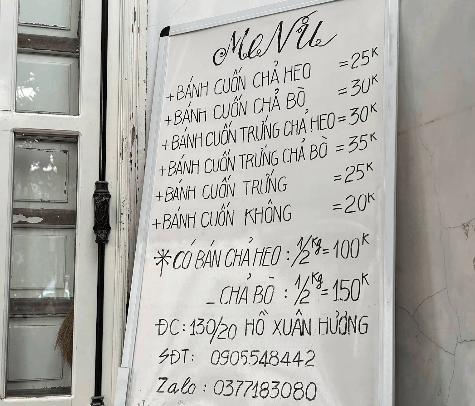 MeNỮ
+BÁNH CUỐN CHẢ HEO =25K
+BÁNH CUỐN CHẢ BÒ =30K
+BÁNH CUỐN TRỨNG CHẢ HEO=30K
+BÁNH CUỐN TRỨNG CHẢ BÒ =35K
+BÁNH CUỐN TRỨNG =25K
+BÁNH CUỐN KHÔNG =20K
*CÓ BÁN CHẢ HEO : 1/2Kg=100K
_ CHẢ BÒ : 1/2Kg=150K
ĐC: 130/20 HỒ XUÂN HƯƠNG
SĐT: 0905548442
Zalo: 0377183080